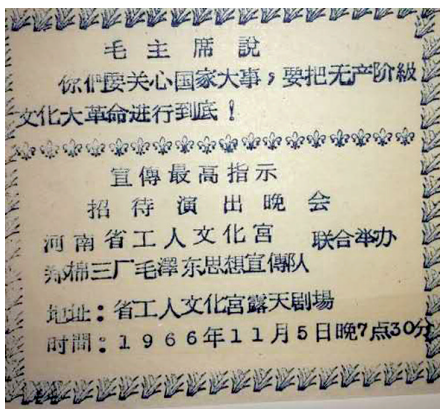 毛主席說
你們要关心国家大事，要把无产阶級
文化大革命进行到底！
宣傳最高指示
招待演出晚会
河南省工人文化宮 联合举办
郑棉三厂毛澤东思想宣傳队
地址：省工人文化宮露天剧場
时間：1966年11月5日晚7点30分